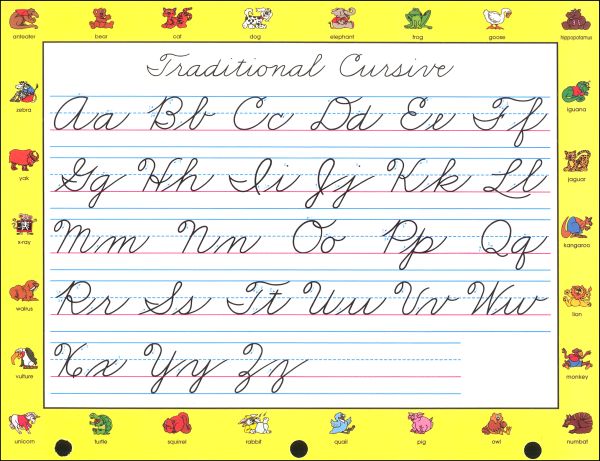 anteater bear cat dog elephant frog goose hippopotamus
Traditional Cursive
zebra Aa Bb Cc Dd Ee Ff iguana
yak Gg Hh Ii Jj Kk Ll jaguar
x-ray Mm Nn Oo Pp Qq kangaroo
walrus Rr Ss Tt Uu Vv Ww lion
vulture Xx Yy Zz monkey
unicorn turtle squirrel rabbit quail pig owl numbat